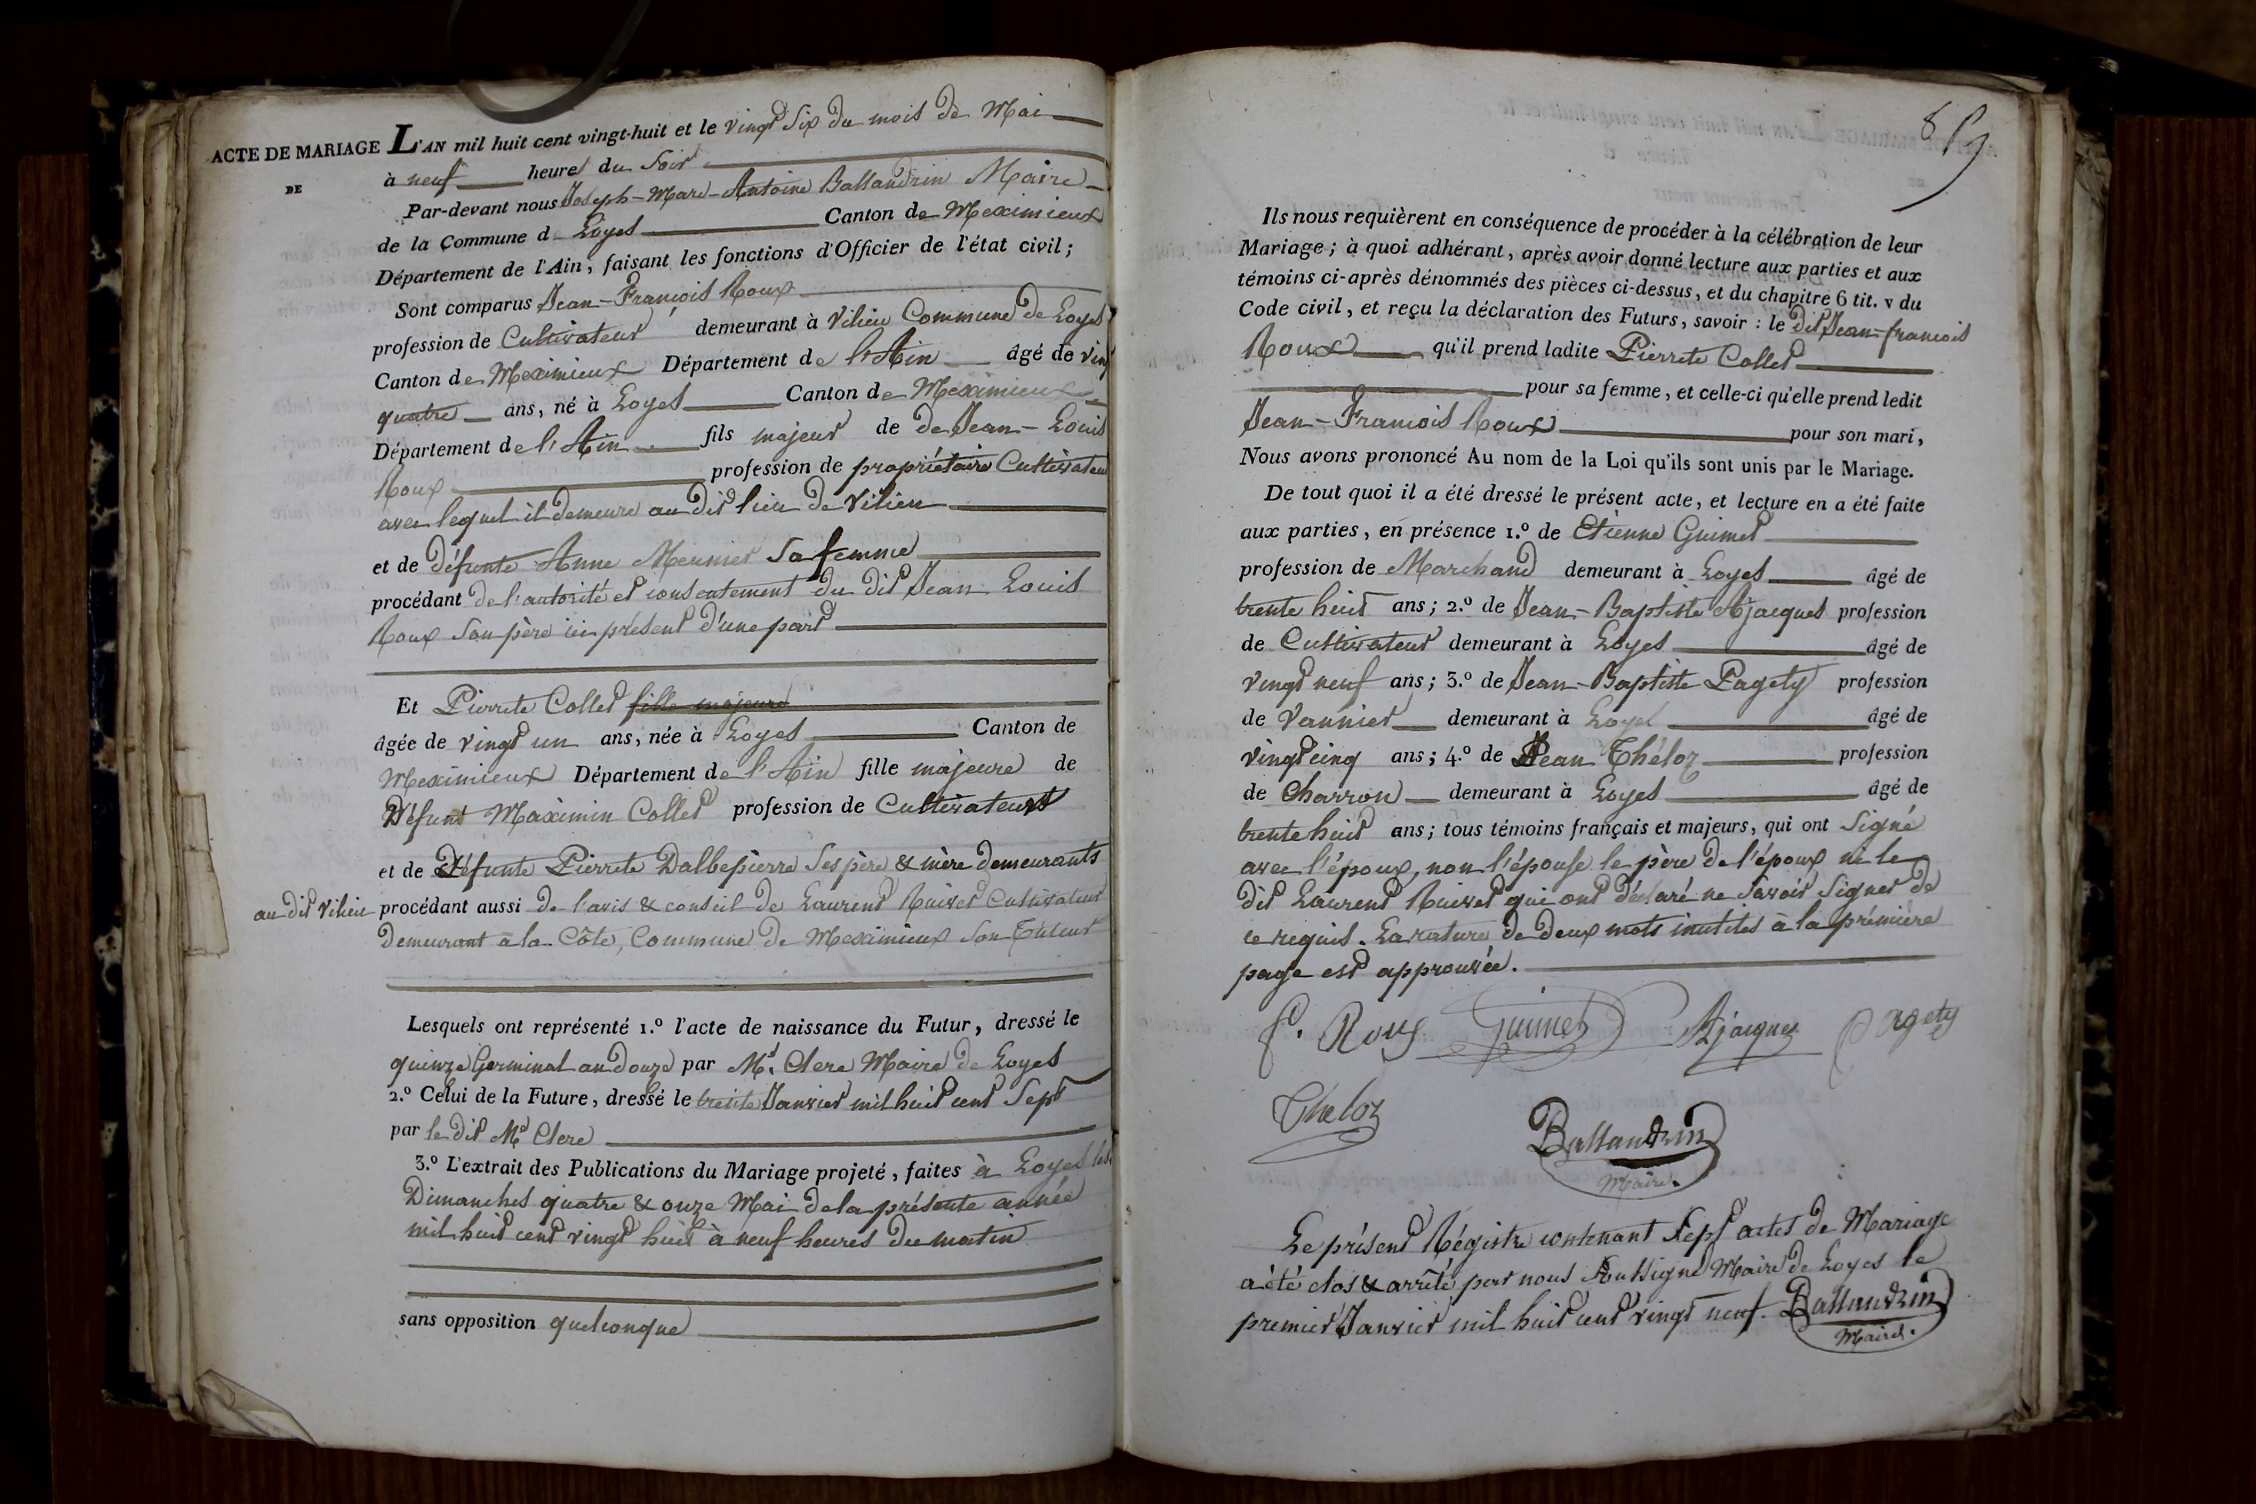 ACTE DE MARIAGE
DE
L'AN mil huit cent vingt-huit et le vingt Six du mois de Mai
à neuf heures du Soir
Par-devant nous Joseph-Marc-Antoine Ballandrin Maire
de la Commune d Loyes Canton de Meximieux
Département de l'Ain, faisant les fonctions d'Officier de l'état civil;
Sont comparus Jean-François Roux
profession de Cultivateur demeurant à Vilieu Commune de Loyes
Canton de Meximieux Département de l'Ain âgé de vingt
quatre ans, né à Loyes Canton de Meximieux
Département de l'Ain fils majeur de de Jean-Louis
Roux profession de propriétaire Cultivateur
avec lequel il demeure au dit lieu de Vilieu
et de défunte Anne Mermier Sa femme
procédant de l'autorité et consentement du dit Jean Louis
Roux Son père ici présent d'une part
Et Pierrete Collet fille majeure
âgée de vingt un ans, née à Loyes Canton de
Meximieux Département de l'Ain fille majeure de
Défunt Maximin Collet profession de Cultivateurs
et de Défunte Pierrete Dalbepierre Ses père & mère demeurants
au dit Vilieu procédant aussi de l'avis & conseil de Laurent Ruivet Cultivateur
Demeurant à la Côte, Commune de Meximieux Son Tuteur
Lesquels ont représenté 1.º l'acte de naissance du Futur, dressé le
quinze Germinal an douze par Mr. Clerc Maire de Loyes
2.º Celui de la Future, dressé le trente Janvier mil huit cent Sept
par le dit Mr Clerc
3.º L'extrait des Publications du Mariage projeté, faites à Loyes les
Dimanches quatre & onze Mai de la présente année
mil huit cent vingt huit à neuf heures du matin
sans opposition quelconque
Ils nous requièrent en conséquence de procéder à la célébration de leur
Mariage; à quoi adhérant, après avoir donné lecture aux parties et aux
témoins ci-après dénommés des pièces ci-dessus, et du chapitre 6 tit. v du
Code civil, et reçu la déclaration des Futurs, savoir: le dit Jean-francois
Roux qu'il prend ladite Pierrete Collet
pour sa femme, et celle-ci qu'elle prend ledit
Jean-Francois Roux pour son mari,
Nous avons prononcé Au nom de la Loi qu'ils sont unis par le Mariage.
De tout quoi il a été dressé le présent acte, et lecture en a été faite
aux parties, en présence 1.º de Etienne Guimet
profession de Marchand demeurant à Loyes âgé de
trente huit ans; 2.º de Jean-Baptiste Ajacques profession
de Cultivateur demeurant à Loyes âgé de
vingt neuf ans; 3.º de Jean-Baptiste Pagety profession
de Vannier demeurant à Loyes âgé de
vingt cinq ans; 4.º de Jean Théloz profession
de Charron demeurant à Loyes âgé de
trente huit ans; tous témoins français et majeurs, qui ont Signé
avec l'époux, non l'épouse le père de l'époux ni le
dit Laurent Ruivet qui ont déclaré ne Savoir Signer de
ce requis. La rature de deux mots inutiles à la première
page est approuvée.
f. Roux Guimet Ajacques Pagety
Théloz
Ballandrin
Maire.
Le présent Régistre contenant Sept actes de Mariage
a été clos & arrêté par nous Sousigné Maire de Loyes le
premier Janvier mil huit cent vingt neuf. Ballandrin
Maire.